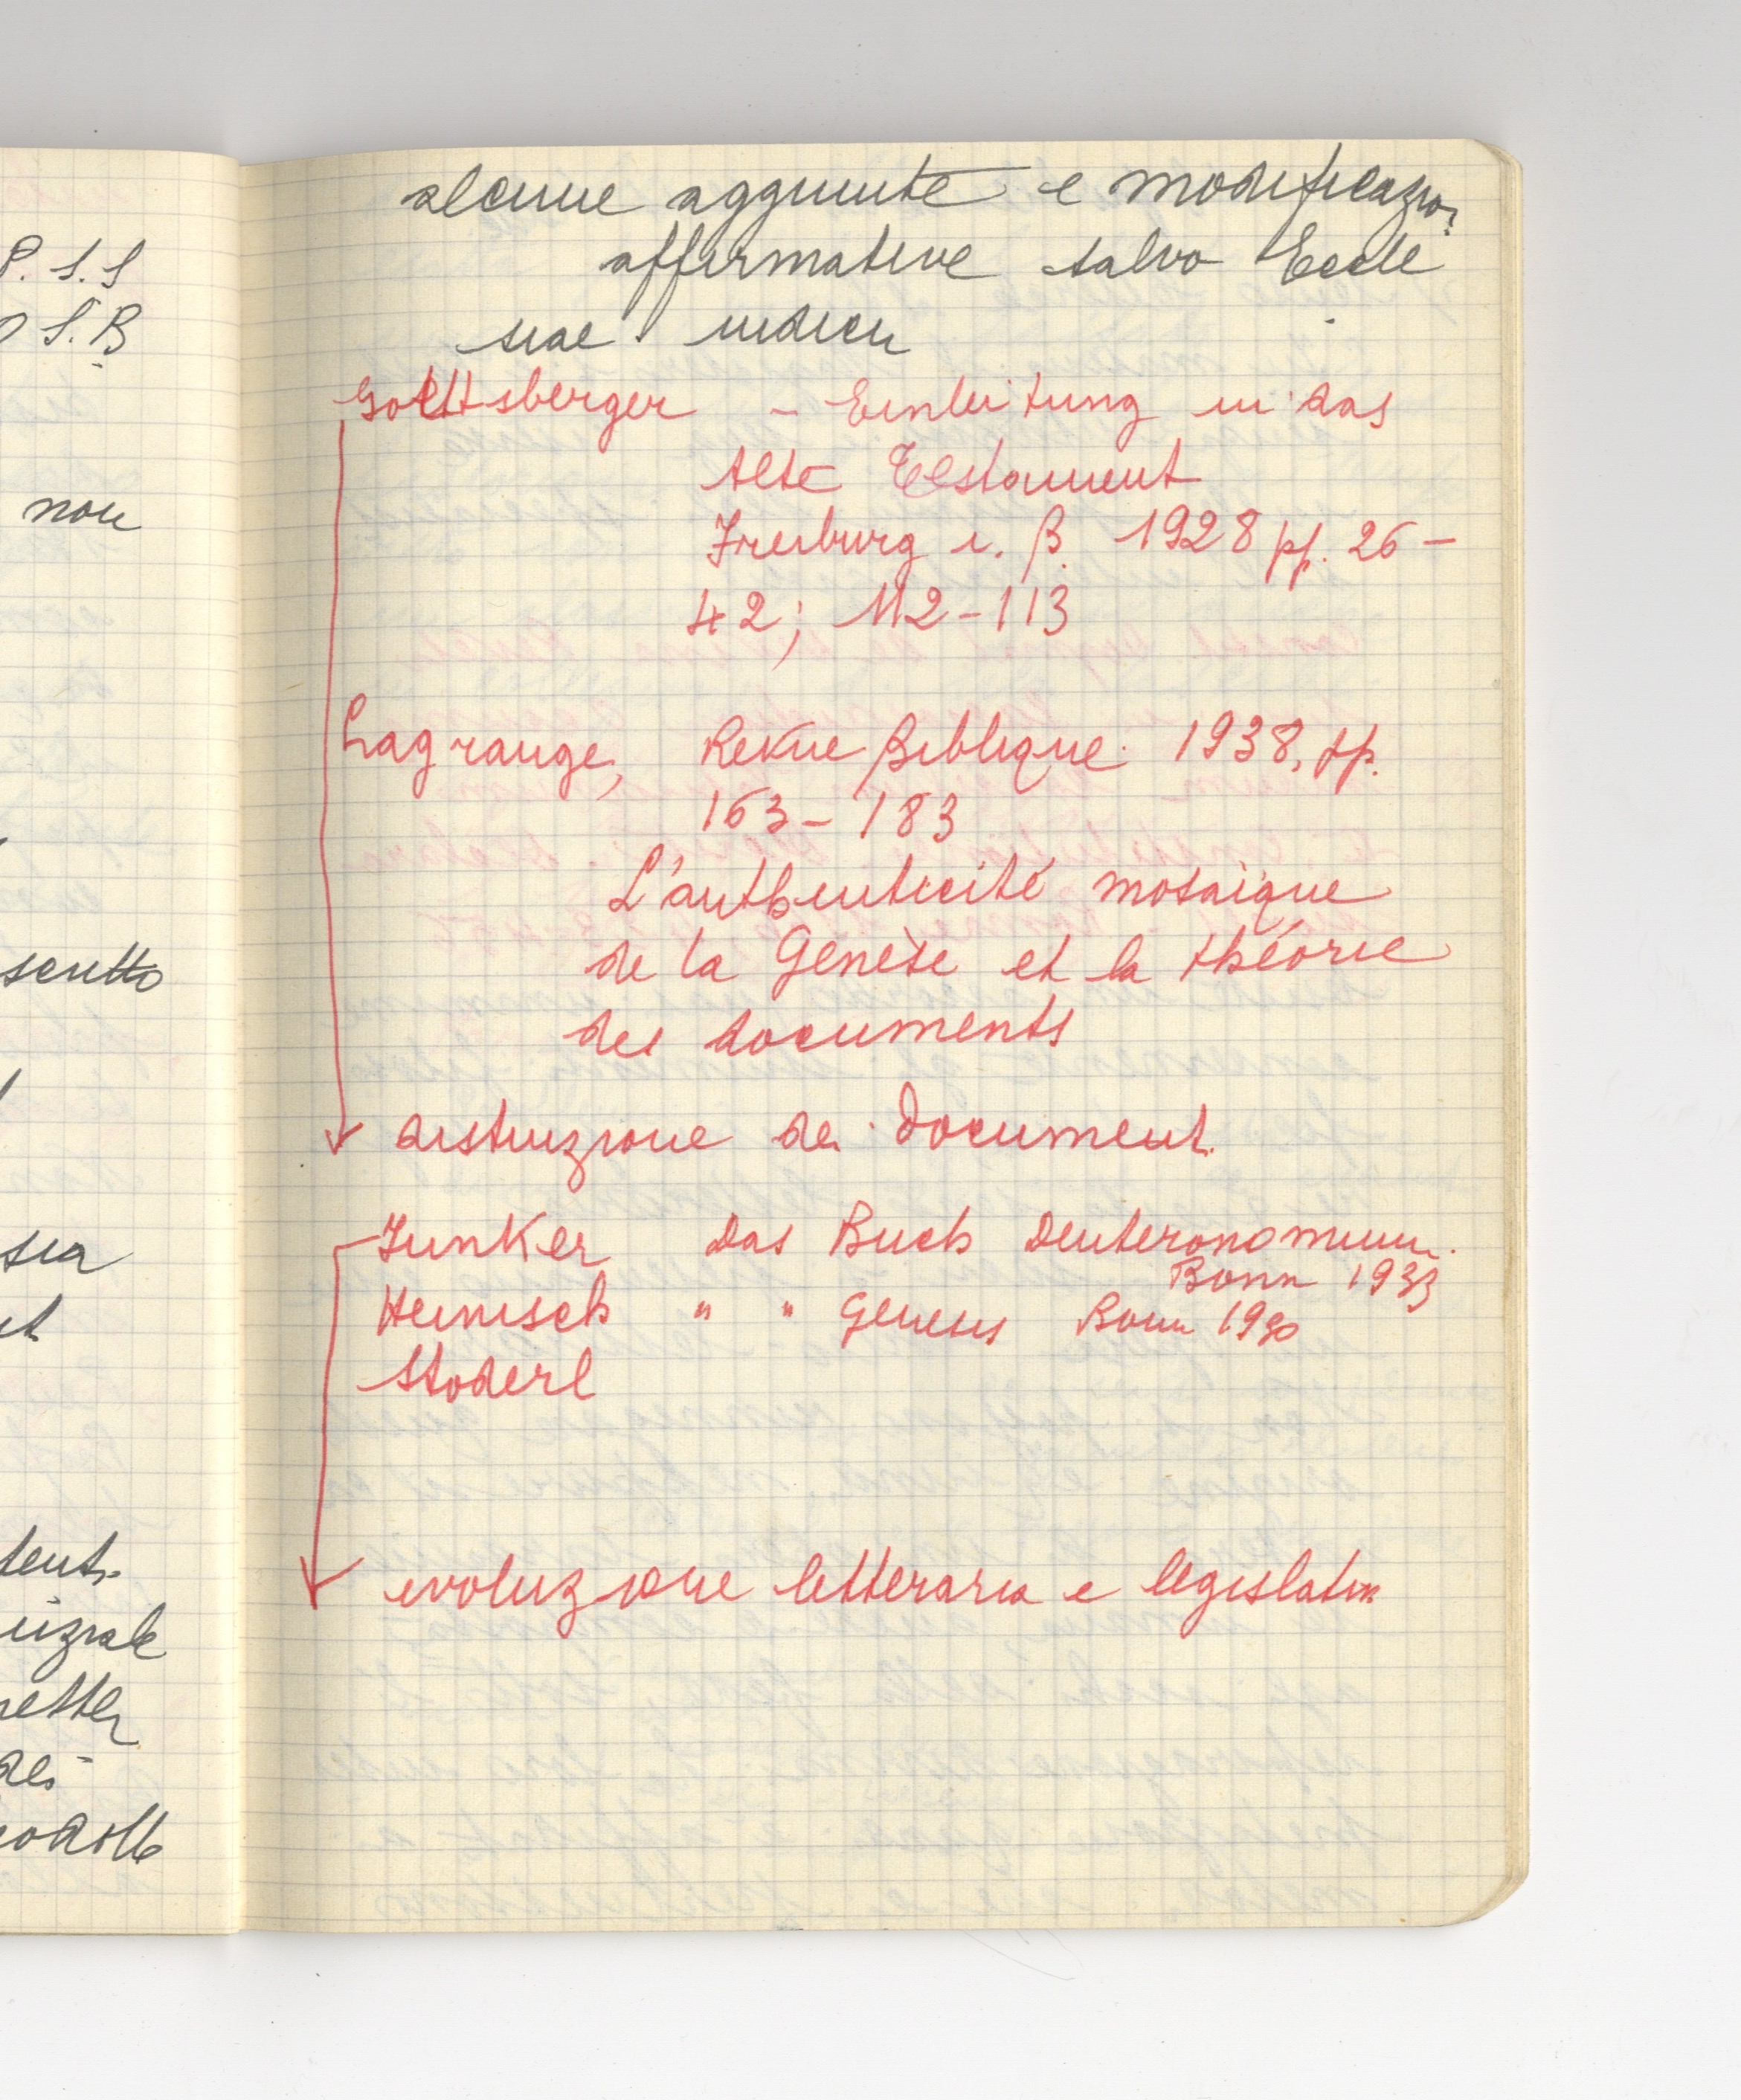 P. S. S
O S. B
non
scritto
sia
et
tent.
uziale
netter
dei
alcune aggiunte e modificazioni
affirmative salvo Eccle
siae iudicii
Gottsberger - Einleitung in das
Alte Testament
Freiburg i. B. 1928 pp. 26 -
42; 112 - 113
Lagrange, Revue Biblique 1938, pp.
163 - 183
L'authenticité mosaïque
de la Genèse et la théorie
des documents
distruzione dei Document.
Junker Das Buch Deuteronomium.
Bonn 1933
Heinisch " " Genesis Bonn 1930
Stoderl
evoluzione letteraria e legislativa